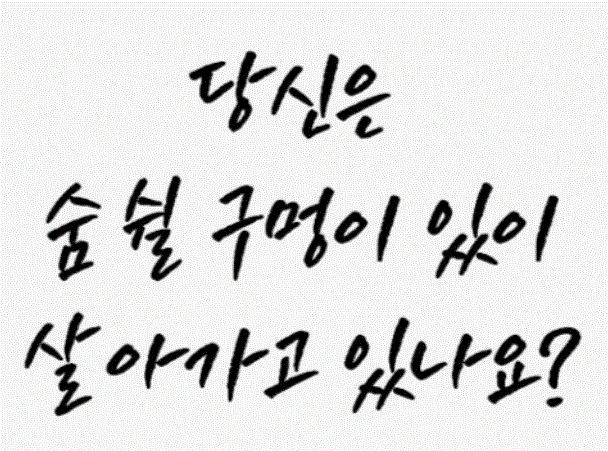 당신은
숨 쉴 구멍이 있이
살아가고 있나요?